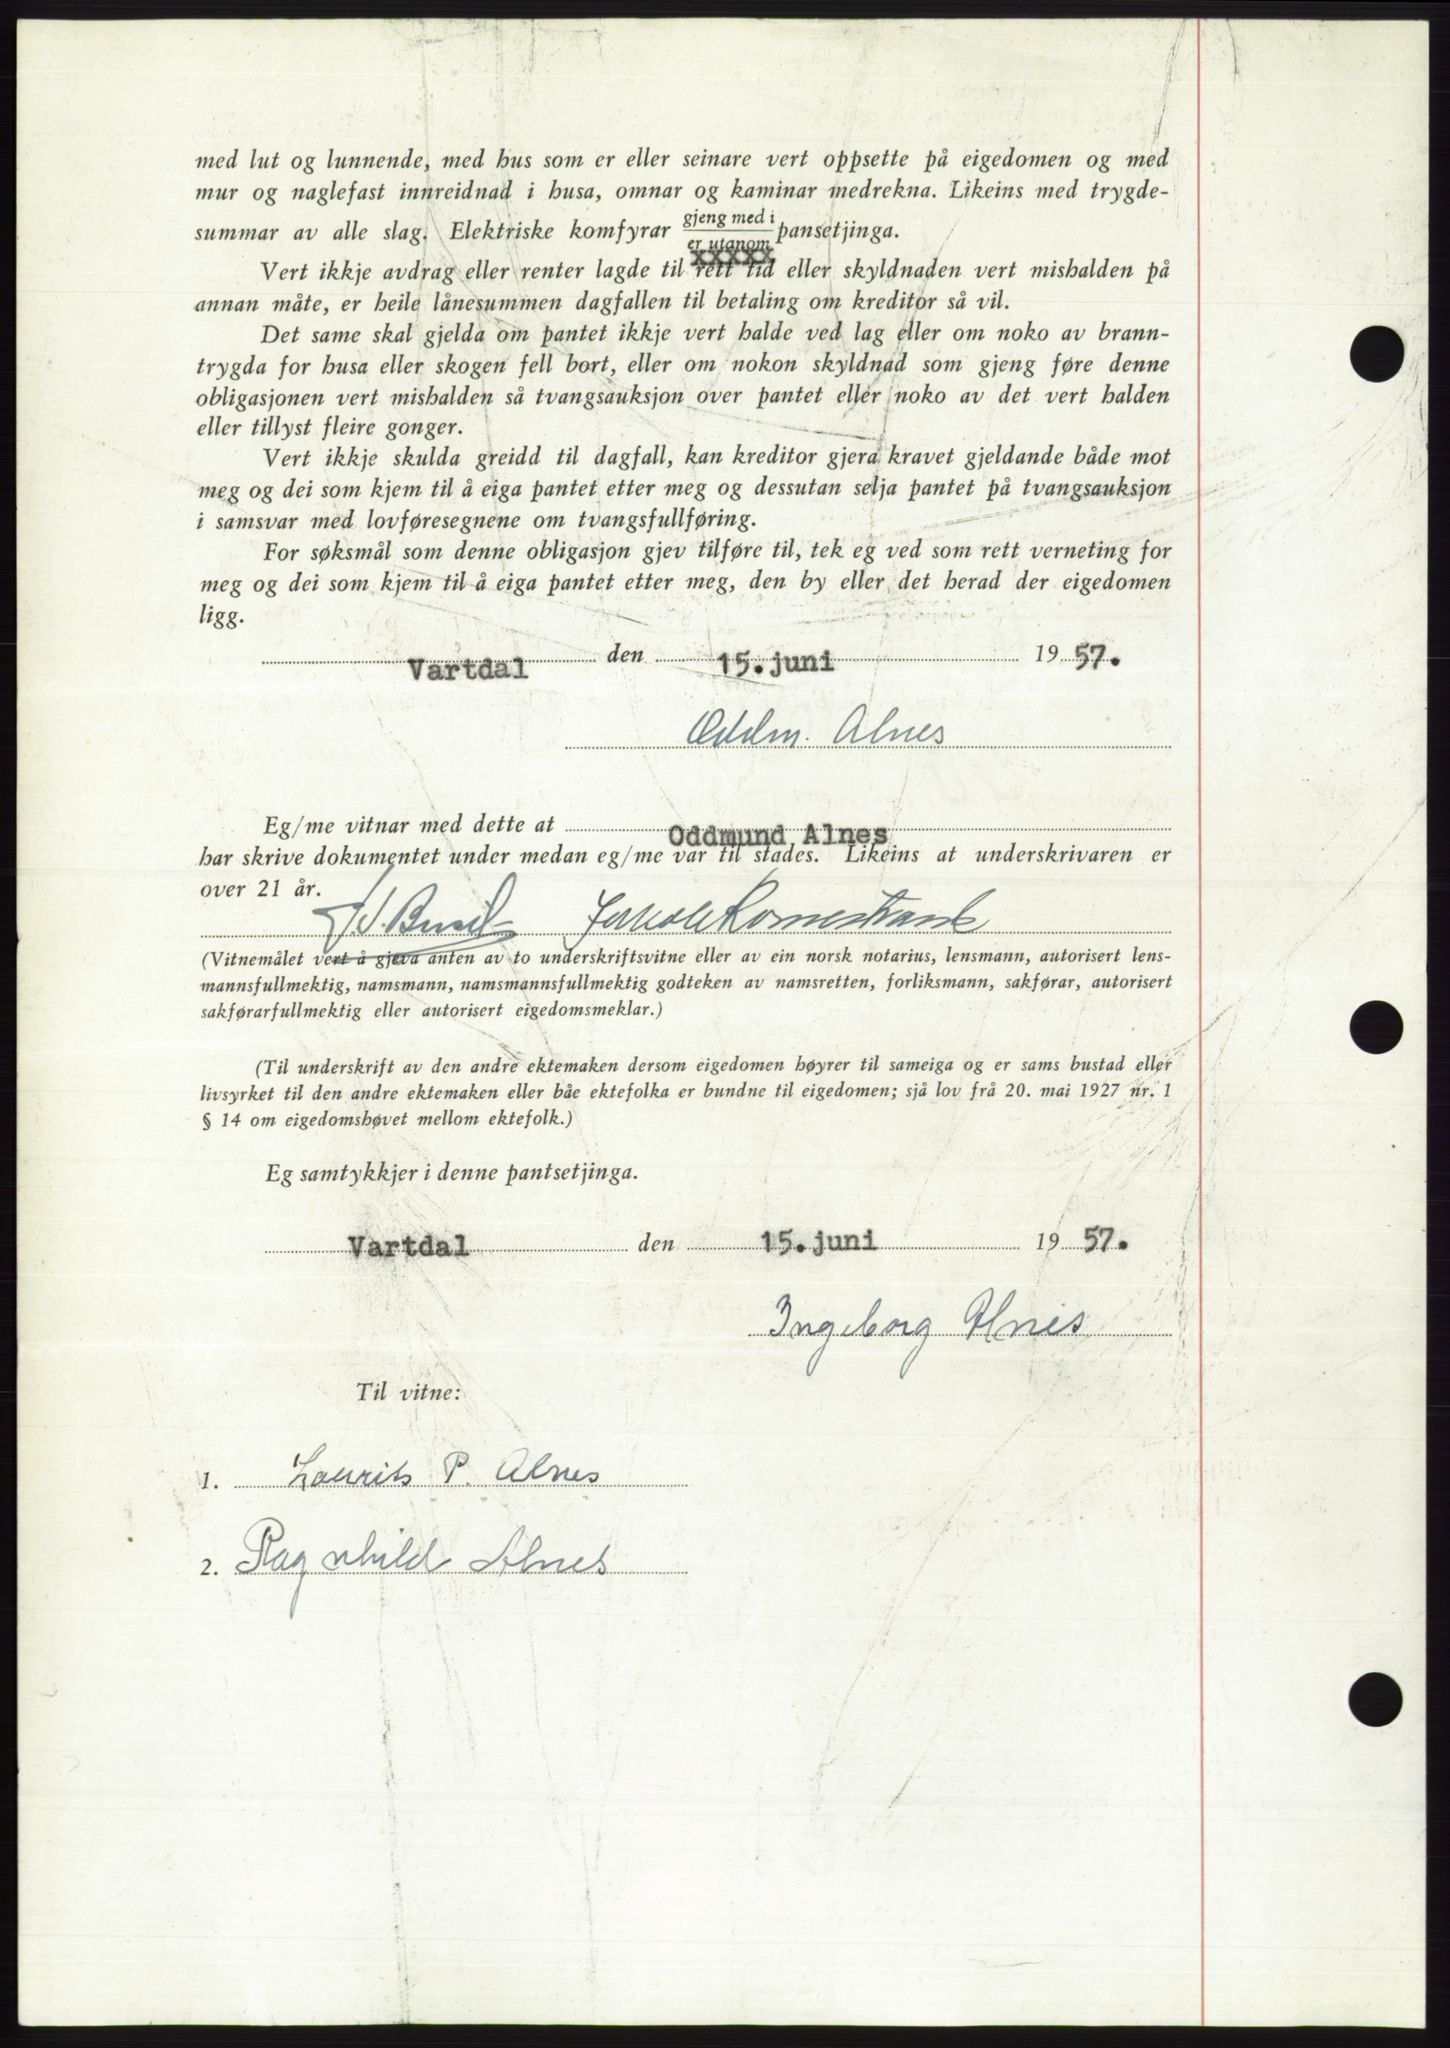 med lut og lunnende, med hus som er eller seinare vert oppsette på eigedomen og med
mur og naglefast innreidnad i husa, omnar og kaminar medrekna. Likeins med trygde-
summar av alle slag. Elektriske komfyrar gjeng med i pansetjinga.
er utanom
xxxxx
Vert ikkje avdrag eller renter lagde til rett tid eller skyldnaden vert mishalden på
annan måte, er heile lånesummen dagfallen til betaling om kreditor så vil.
Det same skal gjelda om pantet ikkje vert halde ved lag eller om noko av brann-
trygda for husa eller skogen fell bort, eller om nokon skyldnad som gjeng føre denne
obligasjonen vert mishalden så tvangsauksjon over pantet eller noko av det vert halden
eller tillyst fleire gonger.
Vert ikkje skulda greidd til dagfall, kan kreditor gjera kravet gjeldande både mot
meg og dei som kjem til å eiga pantet etter meg og dessutan selja pantet på tvangsauksjon
i samsvar med lovføresegnene om tvangsfullføring.
For søksmål som denne obligasjon gjev tilføre til, tek eg ved som rett verneting for
meg og dei som kjem til å eiga pantet etter meg, den by eller det herad der eigedomen
ligg.
Vartdal den 15. juni 19 57.
Oddm. Alnes
Eg/me vitnar med dette at Oddmund Alnes
har skrive dokumentet under medan eg/me var til stades. Likeins at underskrivaren er
over 21 år.
(Vitnemålet vert å gjeva anten av to underskriftsvitne eller av ein norsk notarius, lensmann, autorisert lens-
mannsfullmektig, namsmann, namsmannsfullmektig godteken av namsretten, forliksmann, sakførar, autorisert
sakførarfullmektig eller autorisert eigedomsmeklar.)
(Til underskrift av den andre ektemaken dersom eigedomen høyrer til sameiga og er sams bustad eller
livsyrket til den andre ektemaken eller båe ektefolka er bundne til eigedomen; sjå lov frå 20. mai 1927 nr. 1
§ 14 om eigedomshøvet mellom ektefolk.)
Eg samtykkjer i denne pantsetjinga.
Vartdal den 15. juni 19 57.
Ingeborg Alnes
Til vitne:
1. Laurits P. Alnes
2. Ragnhild Alnes